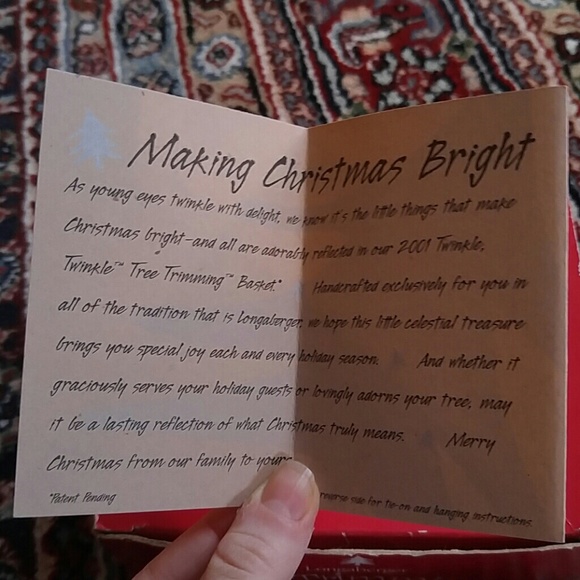 Making Christmas Bright
As young eyes twinkle with delight, we know it's the little things that make
Christmas bright—and all are adorably reflected in our 2001 Twinkle,
Twinkle™ Tree Trimming™ Basket.* Handcrafted exclusively for you in
all of the tradition that is Longaberger, we hope this little celestial treasure
brings you special joy each and every holiday season. And whether it
graciously serves your holiday guests or lovingly adorns your tree, may
it be a lasting reflection of what Christmas truly means. Merry
Christmas from our family to yours
*Patent Pending
reverse side for tie-on and hanging instructions.
Longaberger